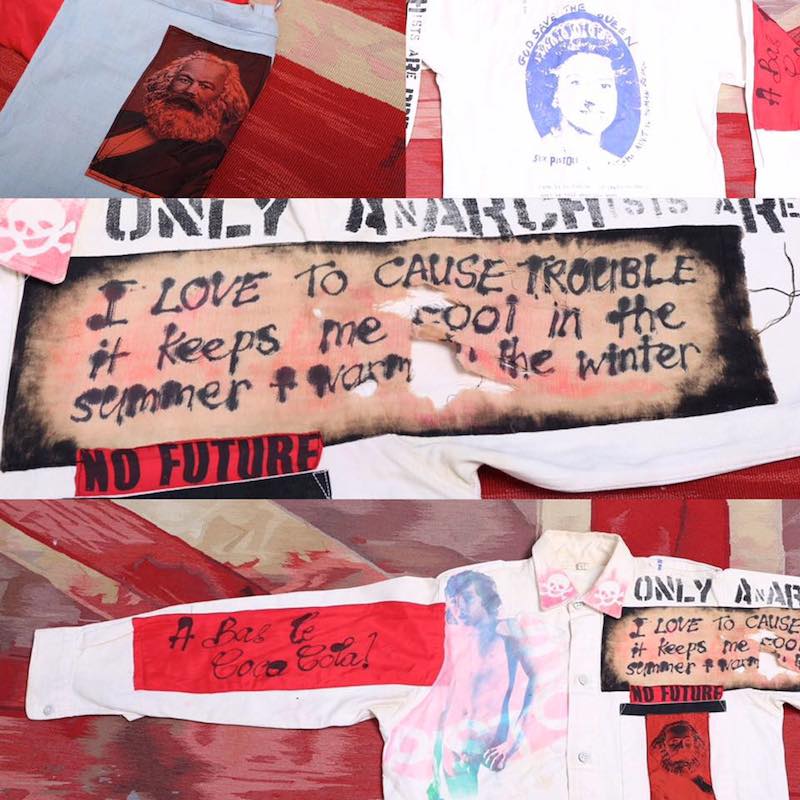 GOD SAVE THE QUEEN
SEX PISTOLS
A Bas
ONLY ANARCHISTS ARE
I LOVE TO CAUSE TROUBLE
it keeps me cool in the
summer + warm in the winter
NO FUTURE
A Bas le
Coca Cola!
ONLY ANAR
I LOVE TO CAUSE
it keeps me cool
summer + warm
NO FUTURE